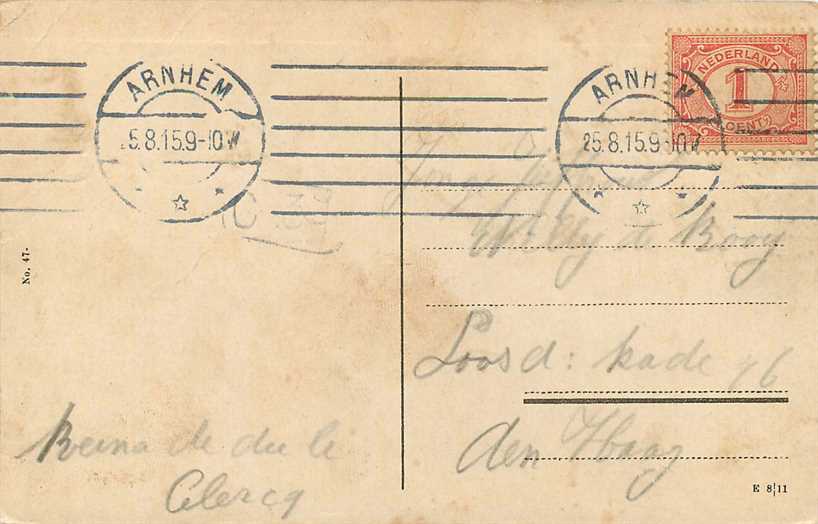 ARNHEM
5.8.15.9-10V
ARNHEM
25.8.15.9-10V
NEDERLAND
1
CENT
No. 47-
Willy de Rooy
Loosd: kade 76
den Haag
de
Clercq
E 8|11